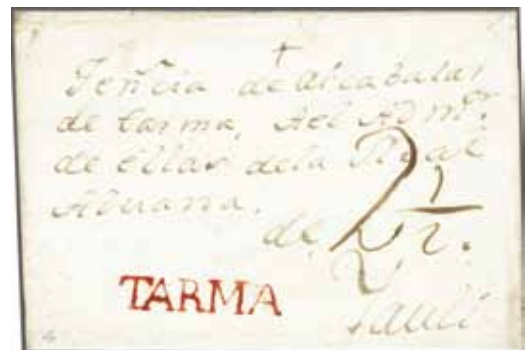 +
Tencia de alcabalas
de tarma, Ael ADmor.
de ellas dela Real
Aduana.
de 2½.
TARMA